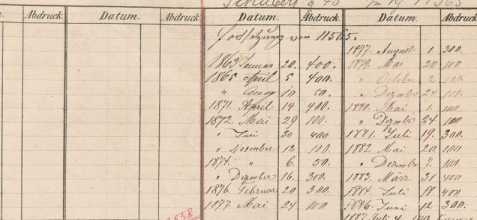 Abdruck. Datum. Abdruck. Datum. Abdruck. Datum. Abdruck.
Fortsetzung von 11565.
1863 Januar 20. 400.
1865 April 5 400.
" " 10 50.
1871. April 14 400.
1872. Mai 29 100.
" Juni 20 400
" November 12 100.
1874. " 6 50.
" Dezember 16. 300.
1876 Februar 20 300.
1877 Mai 24 100
1877. August 1. 300.
1879. Mai 20 100
" October 2. 100.
" Dezember 100.
1880. Mai 1. 100.
" Dezember 24 100
1881. Juli 19. 300.
1882. Mai 20 100
" Dezember 2. 100
1883. März 31 400
1884 Juli 18 400.
1886. Juni 12 300.
1887. Juli 4